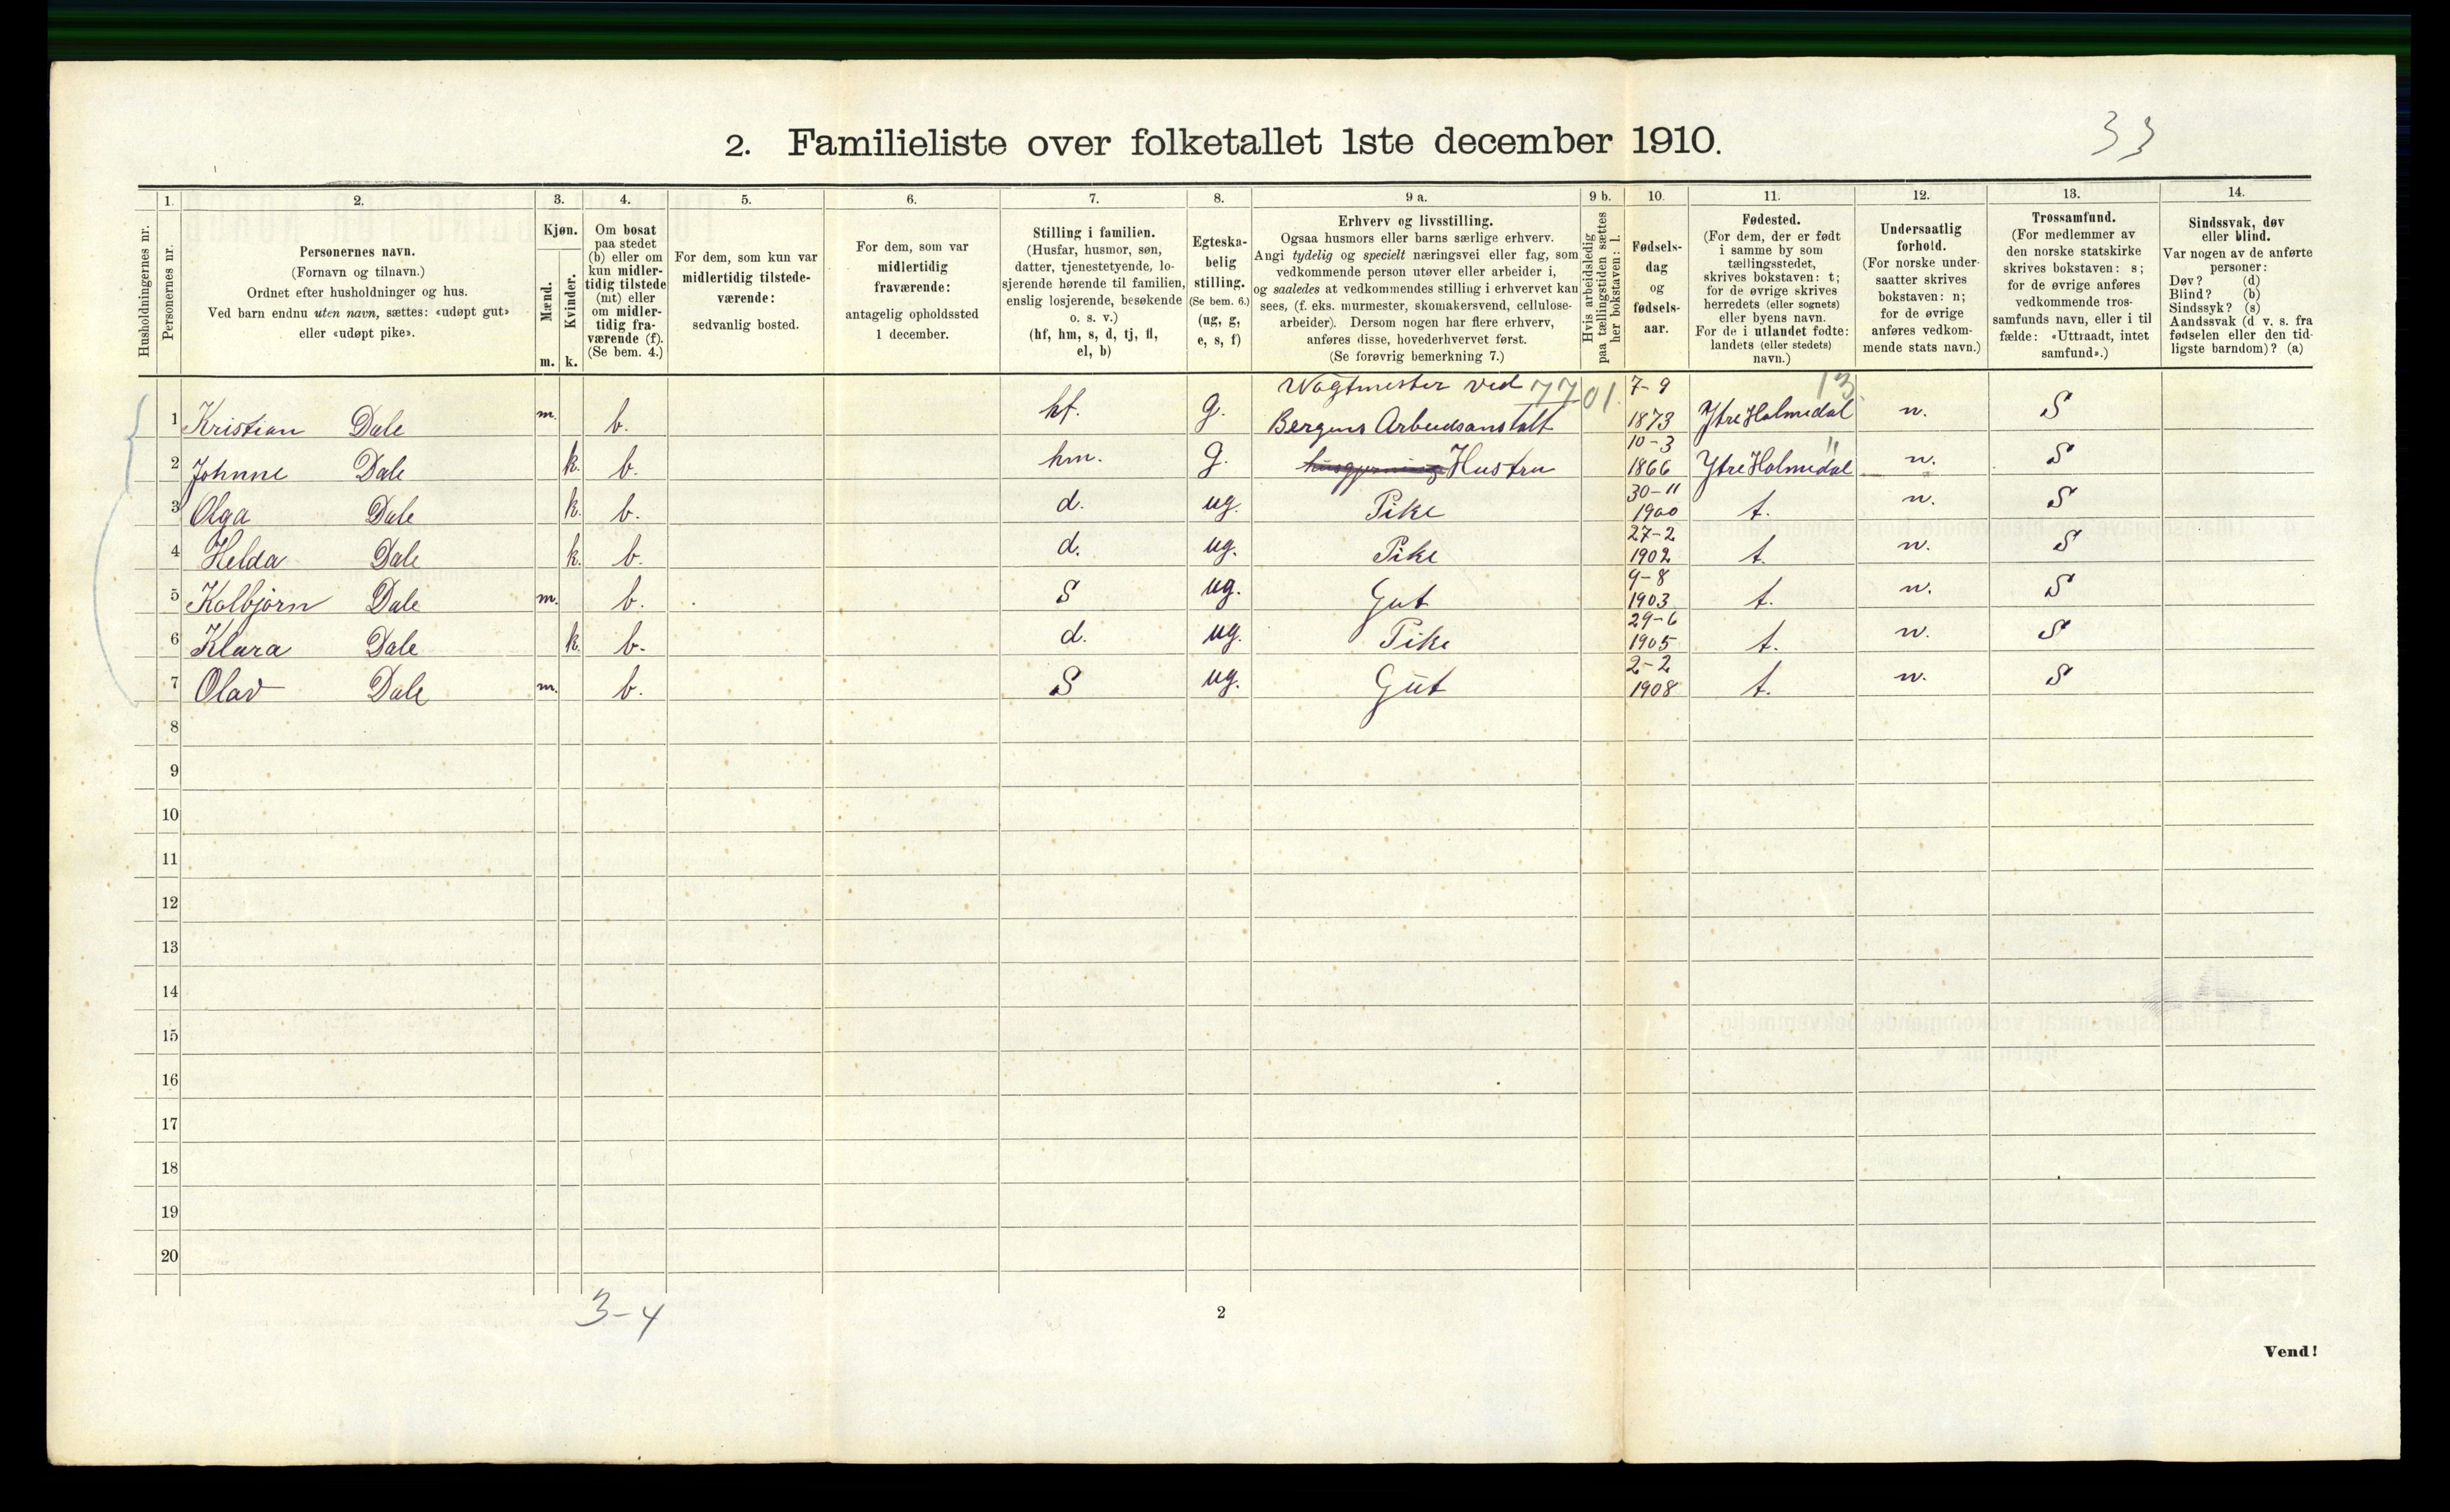 33
2. Familieliste over folketallet 1ste december 1910.
Husholdningernes nr.
1.
Personernes nr.
2.
Personernes navn.
(Fornavn og tilnavn.)
Ordnet efter husholdninger og hus.
Ved barn endnu uten navn, sættes: «udøpt gut»
eller «udøpt pike».
3.
Kjøn.
Mænd.
Kvinder.
m. k.
4.
Om bosat
paa stedet
(b) eller om
kun midler-
tidig tilstede
(mt) eller
om midler-
tidig fra-
værende (f).
(Se bem. 4.)
5.
For dem, som kun var
midlertidig tilstede-
værende:
sedvanlig bosted.
6.
For dem, som var
midlertidig
fraværende:
antagelig opholdssted
1 december.
7.
Stilling i familien.
(Husfar, husmor, søn,
datter, tjenestetyende, lo-
sjerende hørende til familien,
enslig losjerende, besøkende
o. s. v.)
(hf, hm, s, d, tj, fl,
el, b)
8.
Egteska-
belig
stilling.
(Se bem. 6.)
(ug, g,
e, s, f)
9 a.
Erhverv og livsstilling.
Ogsaa husmors eller barns særlige erhverv.
Angi tydelig og specielt næringsvei eller fag, som
vedkommende person utøver eller arbeider i,
og saaledes at vedkommendes stilling i erhvervet kan
sees, (f. eks. murmester, skomakersvend, cellulose-
arbeider). Dersom nogen har flere erhverv,
anføres disse, hovederhvervet først.
(Se forøvrig bemerkning 7.)
9 b.
Hvis arbeidsledig
paa tællingstiden sættes
her bokstaven: l.
10.
Fødsels-
dag
og
fødsels-
aar.
11.
Fødested.
(For dem, der er født
i samme by som
tællingsstedet,
skrives bokstaven: t;
for de øvrige skrives
herredets (eller sognets)
eller byens navn.
For de i utlandet fødte:
landets (eller stedets)
navn.)
12.
Undersaatlig
forhold.
(For norske under-
saatter skrives
bokstaven: n;
for de øvrige
anføres vedkom-
mende stats navn.)
13.
Trossamfund.
(For medlemmer av
den norske statskirke
skrives bokstaven: s;
for de øvrige anføres
vedkommende tros-
samfunds navn, eller i til
fælde: «Uttraadt, intet
samfund».)
14.
Sindssvak, døv
eller blind.
Var nogen av de anførte
personer:
Døv? (d)
Blind? (b)
Sindssyk? (s)
Aandssvak (d v. s. fra
fødselen eller den tid-
ligste barndom)? (a)
Vagtmester ved 7701. 7-9 13
1 Kristian Dale m. b. hf. g. Bergens Arbeidsanstalt 1873 Ytre Holmedal n. S
10-3 "
2 Johnne Dale k. b. hm. g. husgjerning Hustru 1866 Ytre Holmedal n. S
30-11
3 Olga Dale k. b. d. ug. Pike 1900 t. n. S
27-2
4 Helda Dale k. b. d. ug. Pike 1902 t. n. S
9-8
5 Kolbjørn Dale m. b. S ug. Gut 1903 t. n. S
29-6
6 Klara Dale k. b. d. ug. Pike 1905 t. n. S
2-2
7 Olav Dale m. b. S ug. Gut 1908 t. n. S
8
9
10
11
12
13
14
15
16
17
18
19
20
3-4
2
Vend!